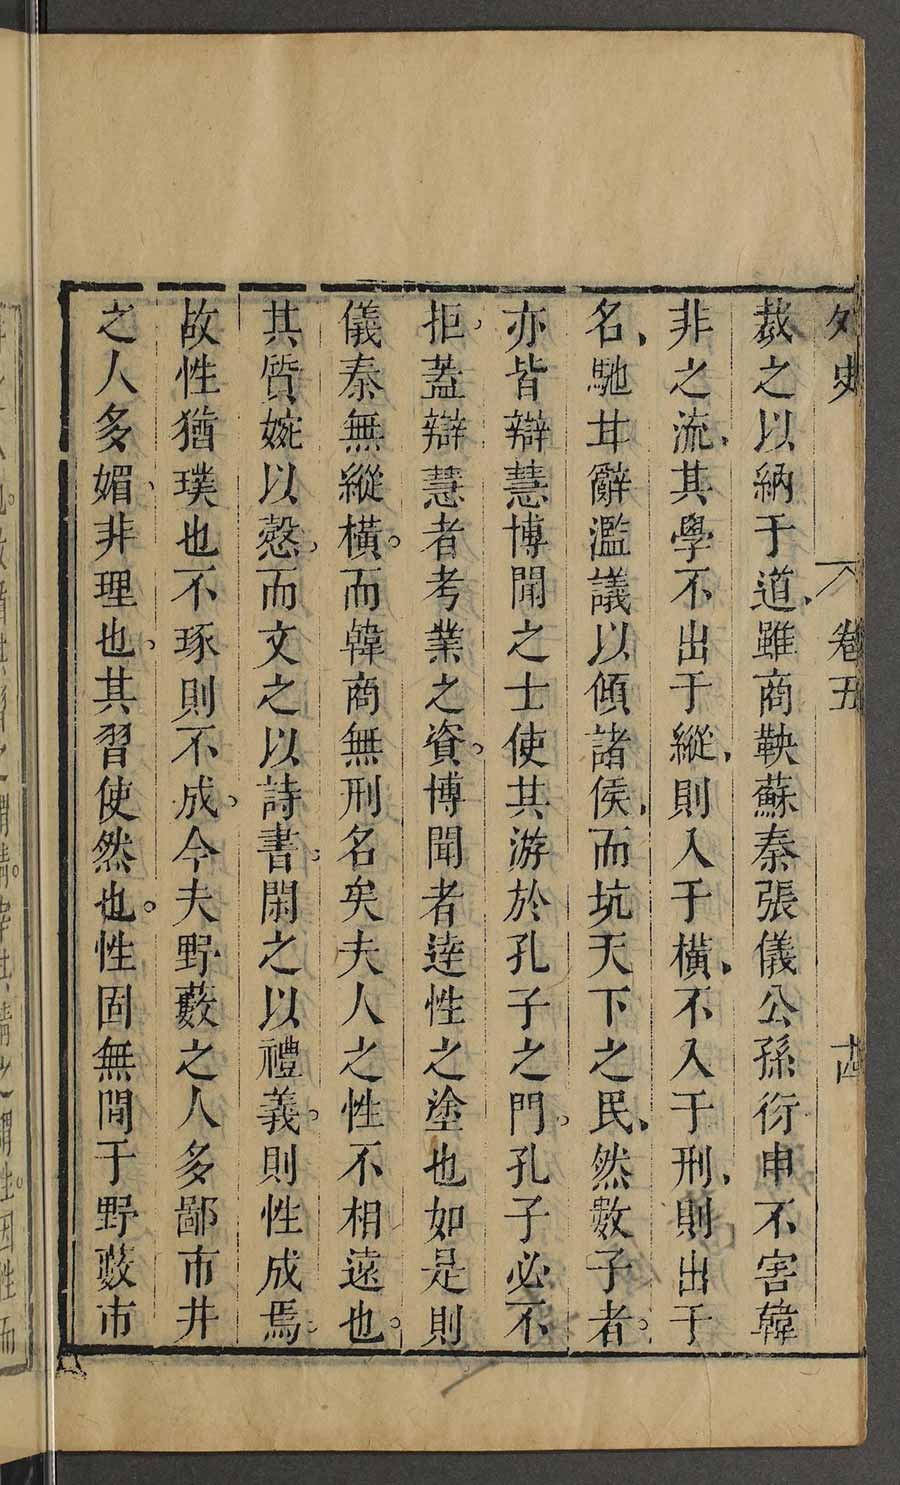 外史 卷五 十四
裁之以納于道、雖商鞅蘇秦張儀公孫衍申不害韓
非之流、其學不出于縱、則入于橫、不入于刑、則出于
名、馳其辭濫議以傾諸侯、而坑天下之民、然數子者。
亦皆辯慧博聞之士使其游於孔子之門。孔子必不
拒、蓋辯慧者考業之資。博聞者逹性之塗也如是則
儀秦無縱橫。而韓商無刑名矣夫人之性不相遠也。
其質婉以慤、而文之以詩書。閑之以禮義。則性成焉。
故性猶璞也不琢則不成。今夫野藪之人多鄙市井
之人多媚、非理也、其習使然也。性固無間于野藪市